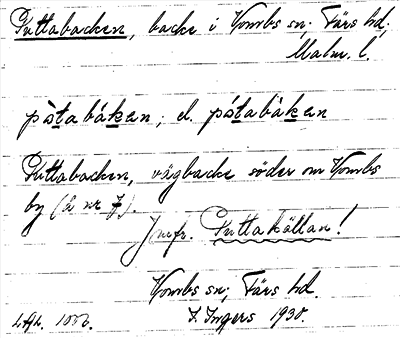 Puttabacken, backe i Vombs sn; Färs hd;
Malm. l.
pòtabáken; el. pótabàken
Puttabacken, vägbacke söder om Vombs
by (å nr 7).
Jmfr. Puttakällan!
Vombs sn; Färs hd.
I. Ingers 1930.